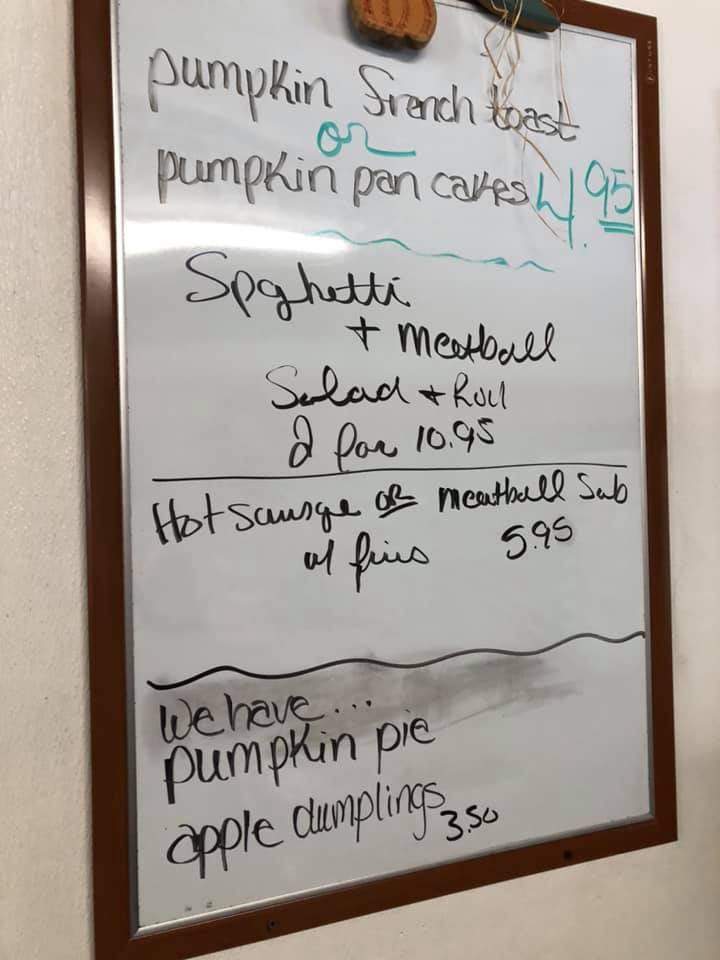 pumpkin french toast
or
pumpkin pan cakes 4.95
Spghetti
+ meatball
Salad + Roll
2 for 10.95
Hot Sausge OR meatball Sub
w/ fries 5.95
We have...
pumpkin pie
apple dumplings 3.50